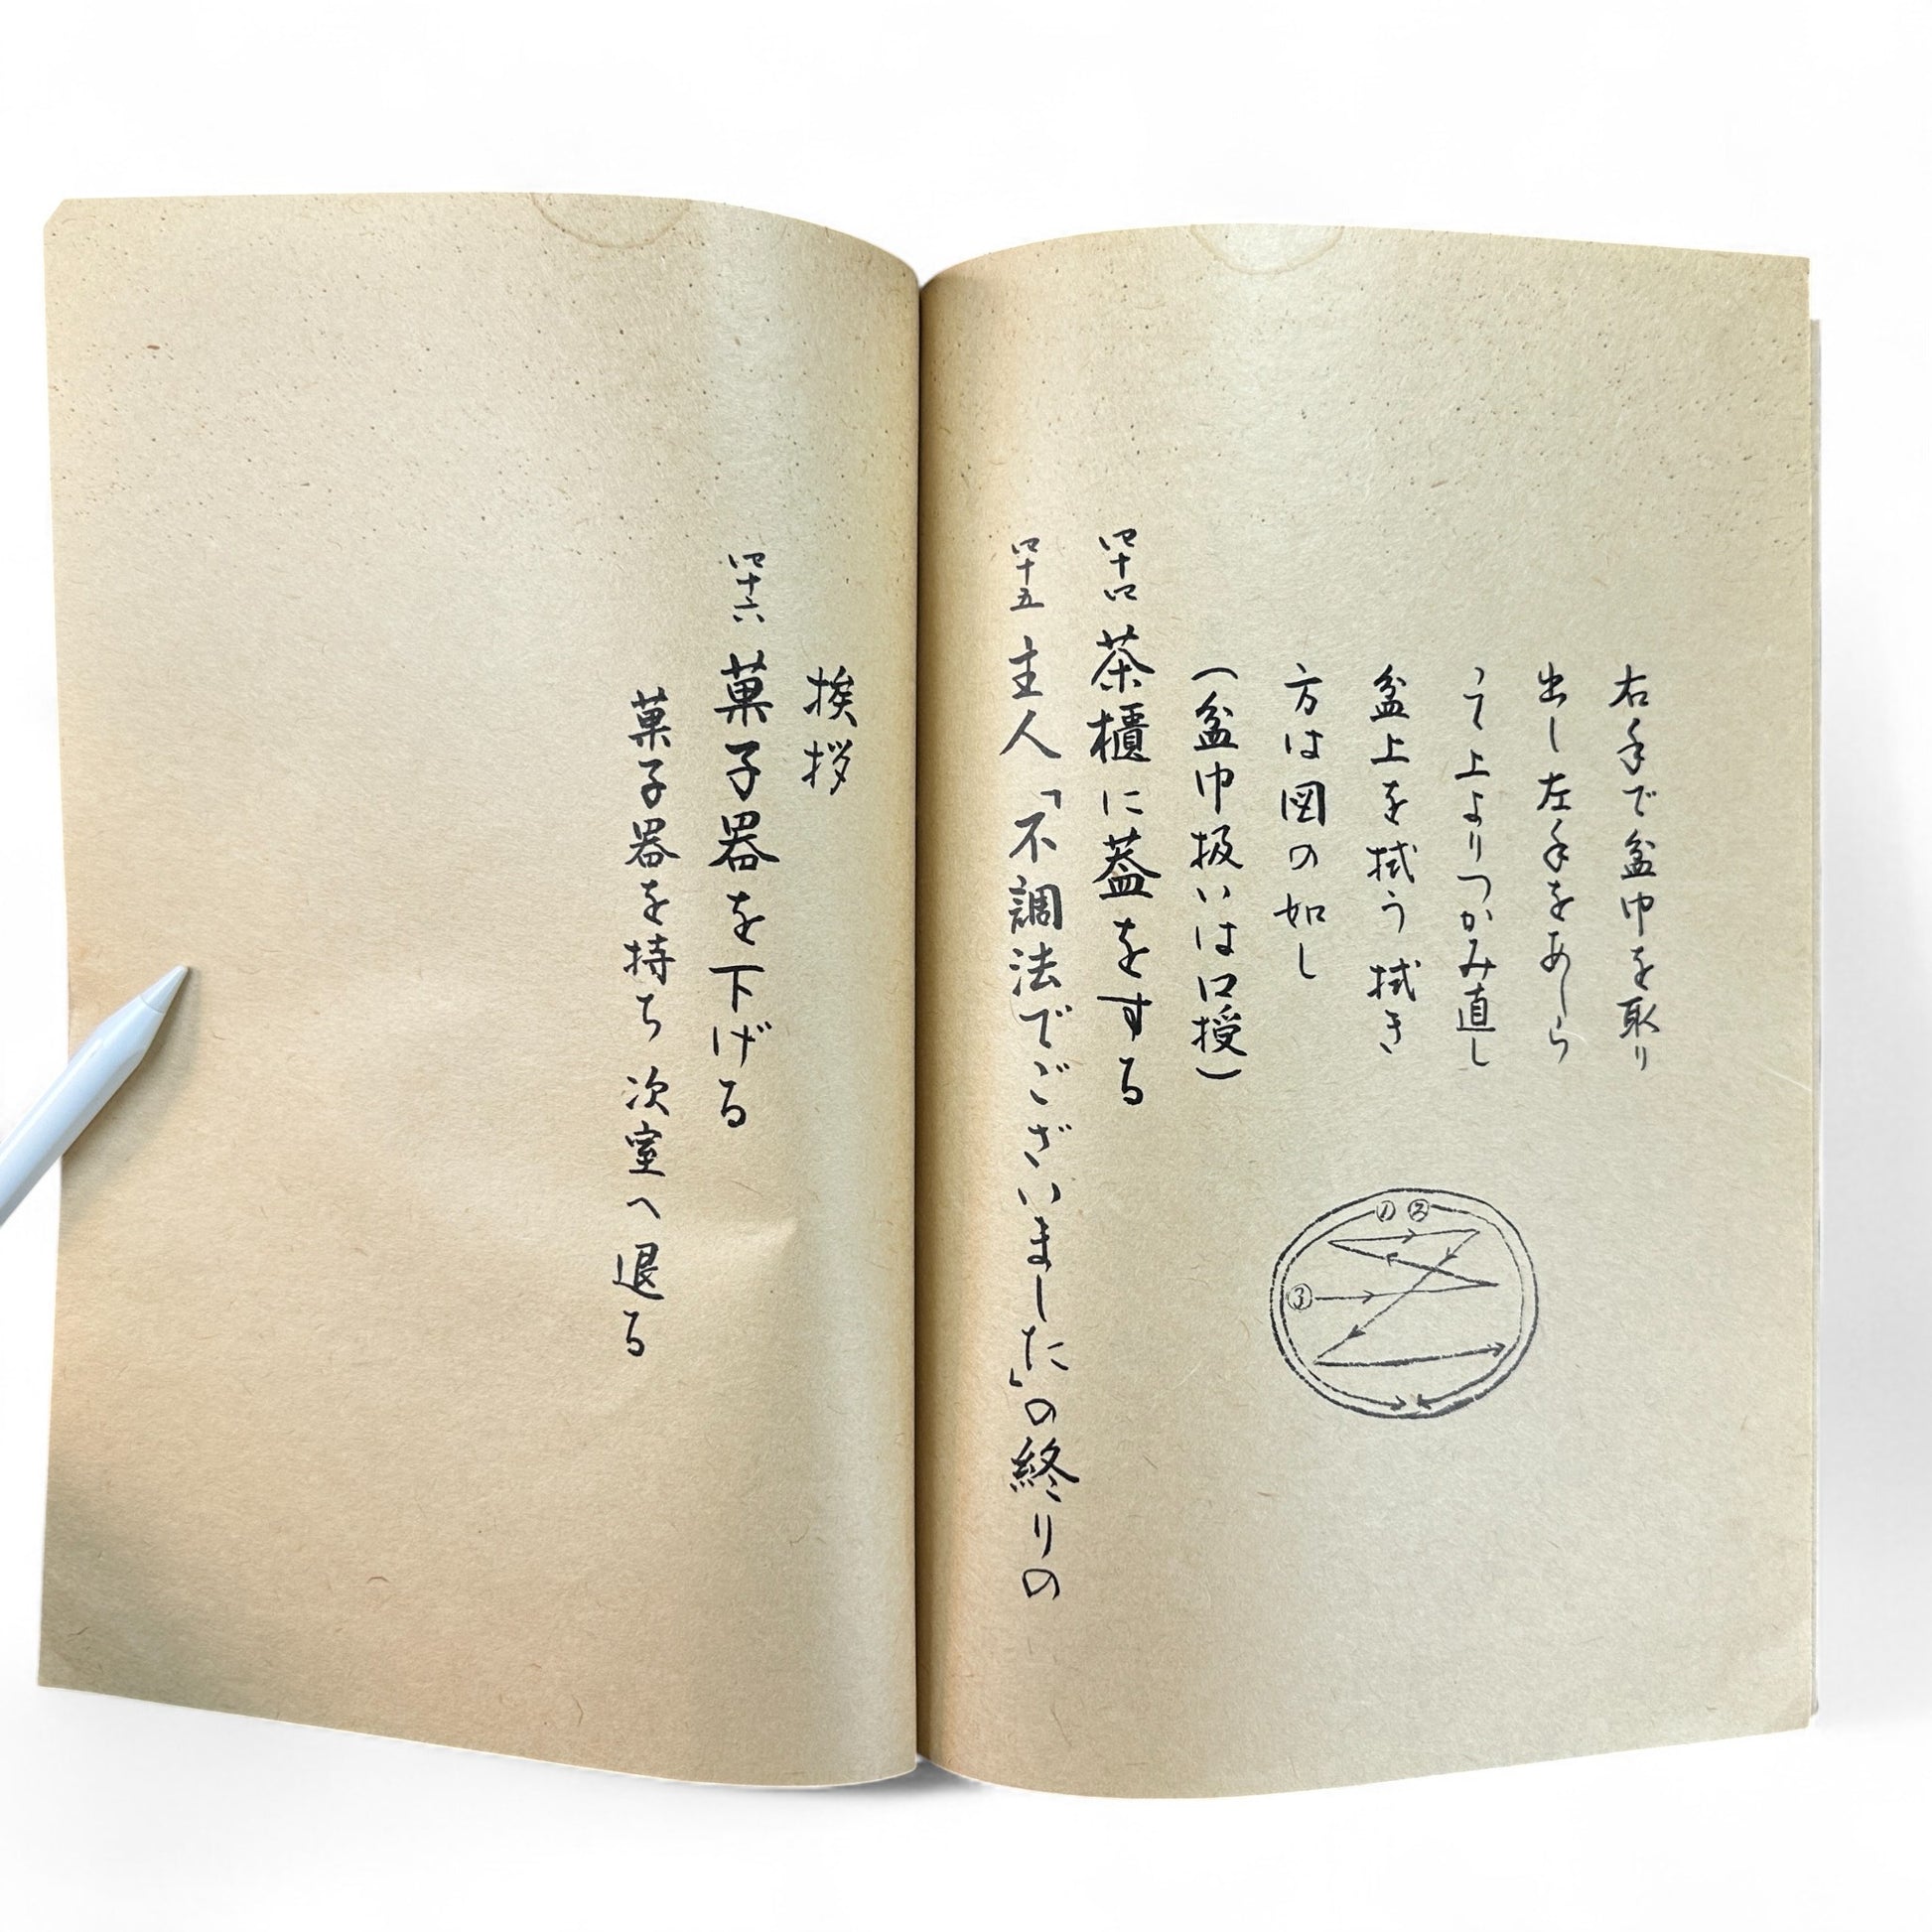 右手で盆巾を取り
出し左手をあしら
って上よりつかみ直し
盆上を拭う拭き
方は図の如し
(盆巾扱いは口授)
① ②
③
四十四 茶櫃に蓋をする
四十五 主人「不調法でございました」の終りの
挨拶
四十六 菓子器を下げる
菓子器を持ち次室へ退る